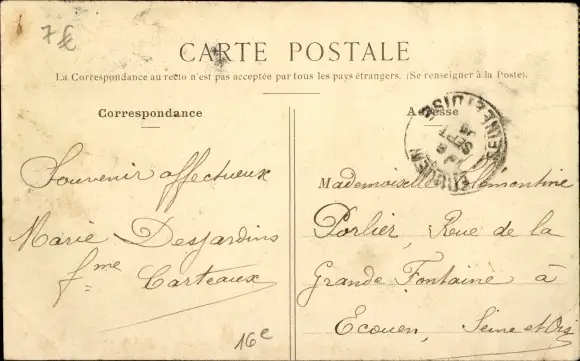 7€
CARTE POSTALE
La Correspondance au recto n'est pas acceptée par tous les pays étrangers. (Se renseigner à la Poste).
Correspondance
Souvenir affectueux
Marie Desjardins
fme Carteaux
16e
Adresse
SEINE-ET-OISE
SEPT
Mademoiselle Clementine
Porlier, Rue de la
Grande Fontaine à
Ecouen, Seine et Oise